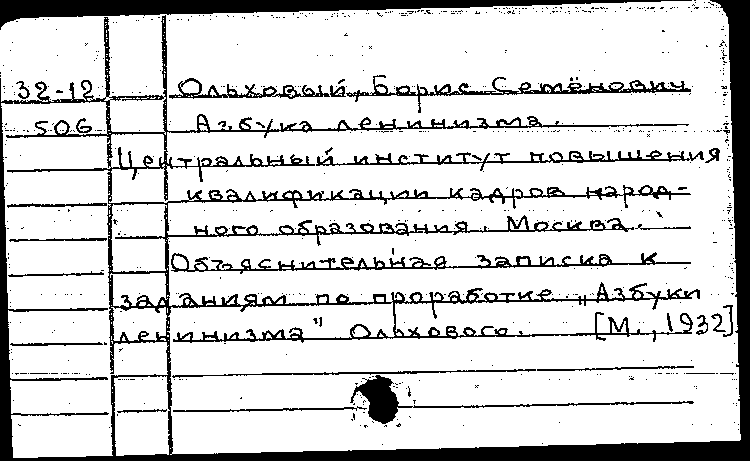 32-12 Ольховый, Борис Семёнович
506 Азбука ленинизма.
Центральный институт повышения
квалификации кадров народ-
ного образования. Москва.
Объяснительная записка к
заданиям по проработке „Азбуки
ленинизма" Ольхового. [М., 1932]